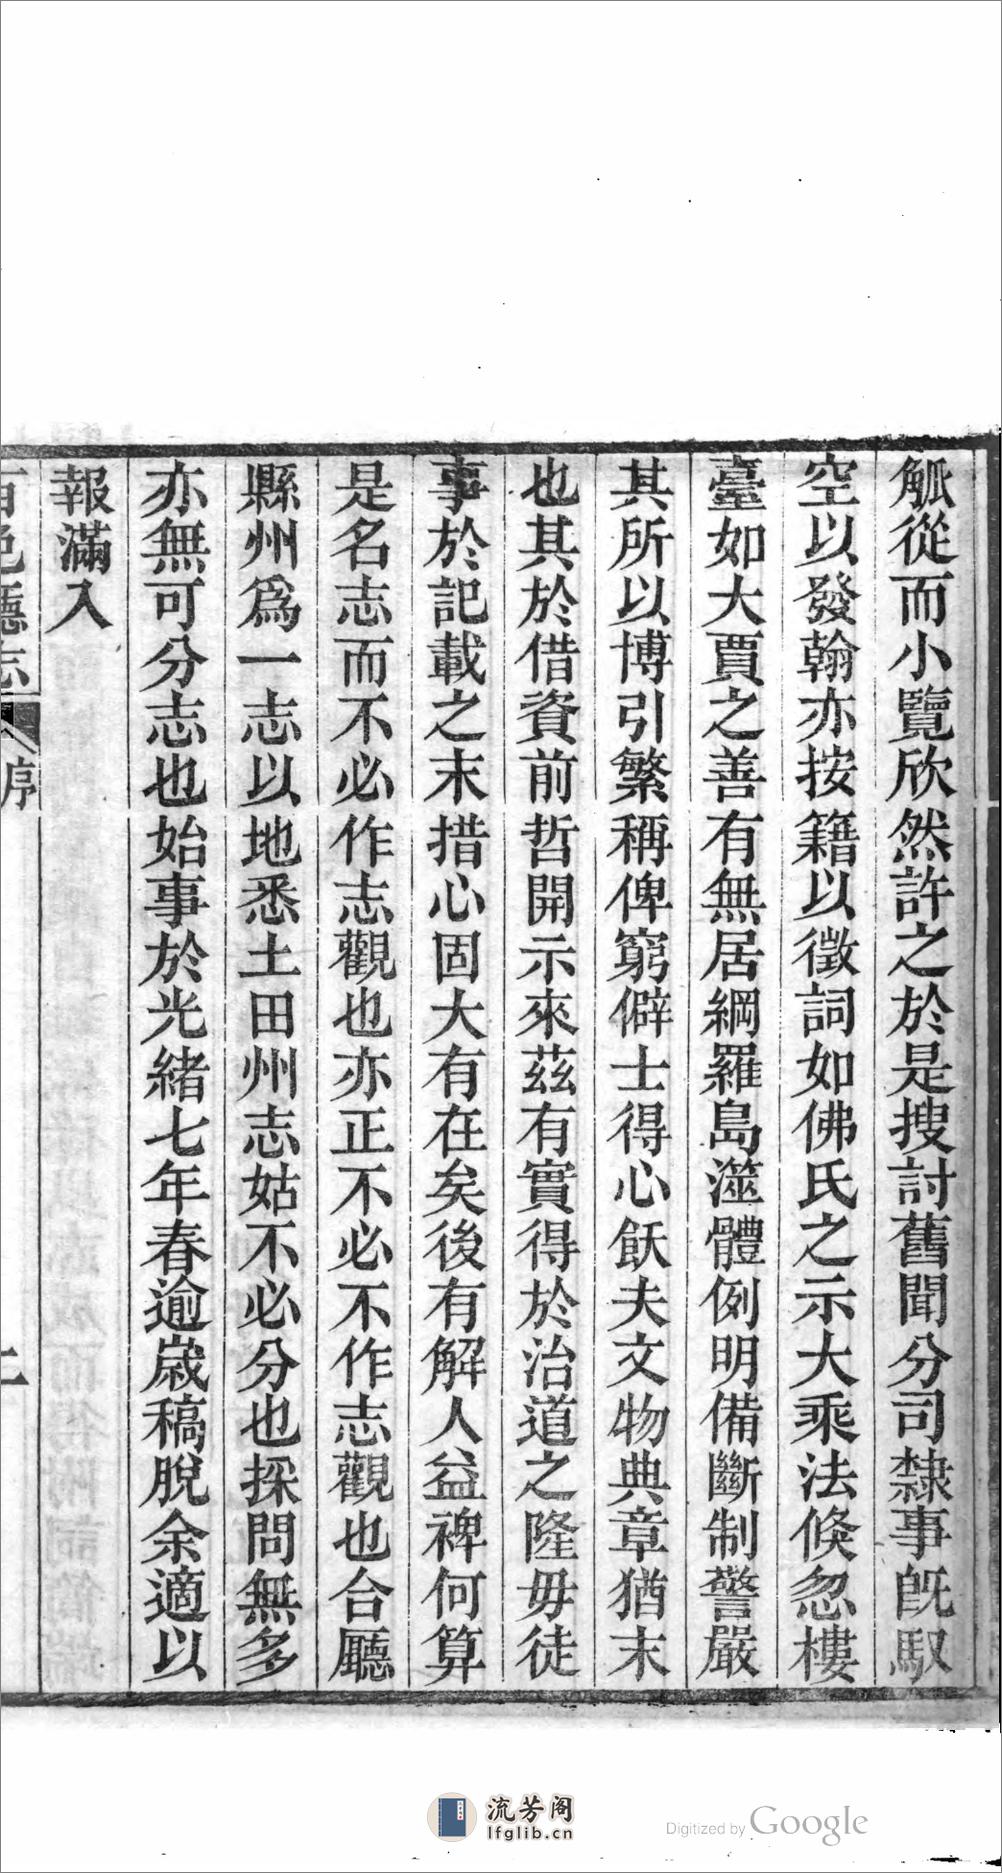 觚從而小覽欣然許之於是搜討舊聞分司隸事旣馭
空以發翰亦按籍以徵詞如佛氏之示大乘法倏忽樓
臺如大賈之善有無居綱羅島澨體例明備斷制警嚴
其所以博引繁稱俾窮僻士得心飫夫文物典章猶末
也其於借資前哲開示來茲有實得於治道之隆毋徒
事於記載之末措心固大有在矣後有解人益裨何算
是名志而不必作志觀也亦正不必不作志觀也合廳
縣州爲一志以地悉土田州志姑不必分也採問無多
亦無可分志也始事於光緒七年春逾歲稿脫余適以
報滿入
百色廳志 序 二
流芳阁
lfglib.cn
Digitized by Google